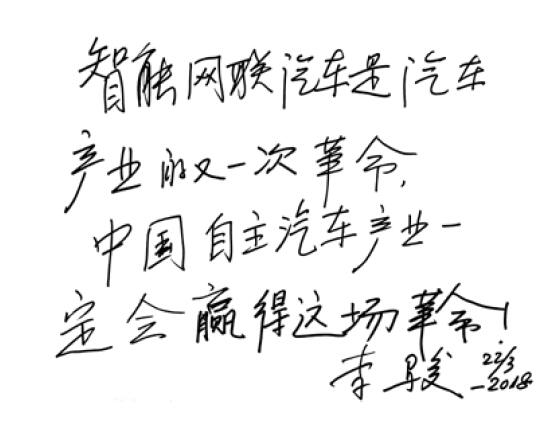 智能网联汽车是汽车
产业的又一次革命,
中国自主汽车产业一
定会赢得这场革命!
李骏 22/3
-2018